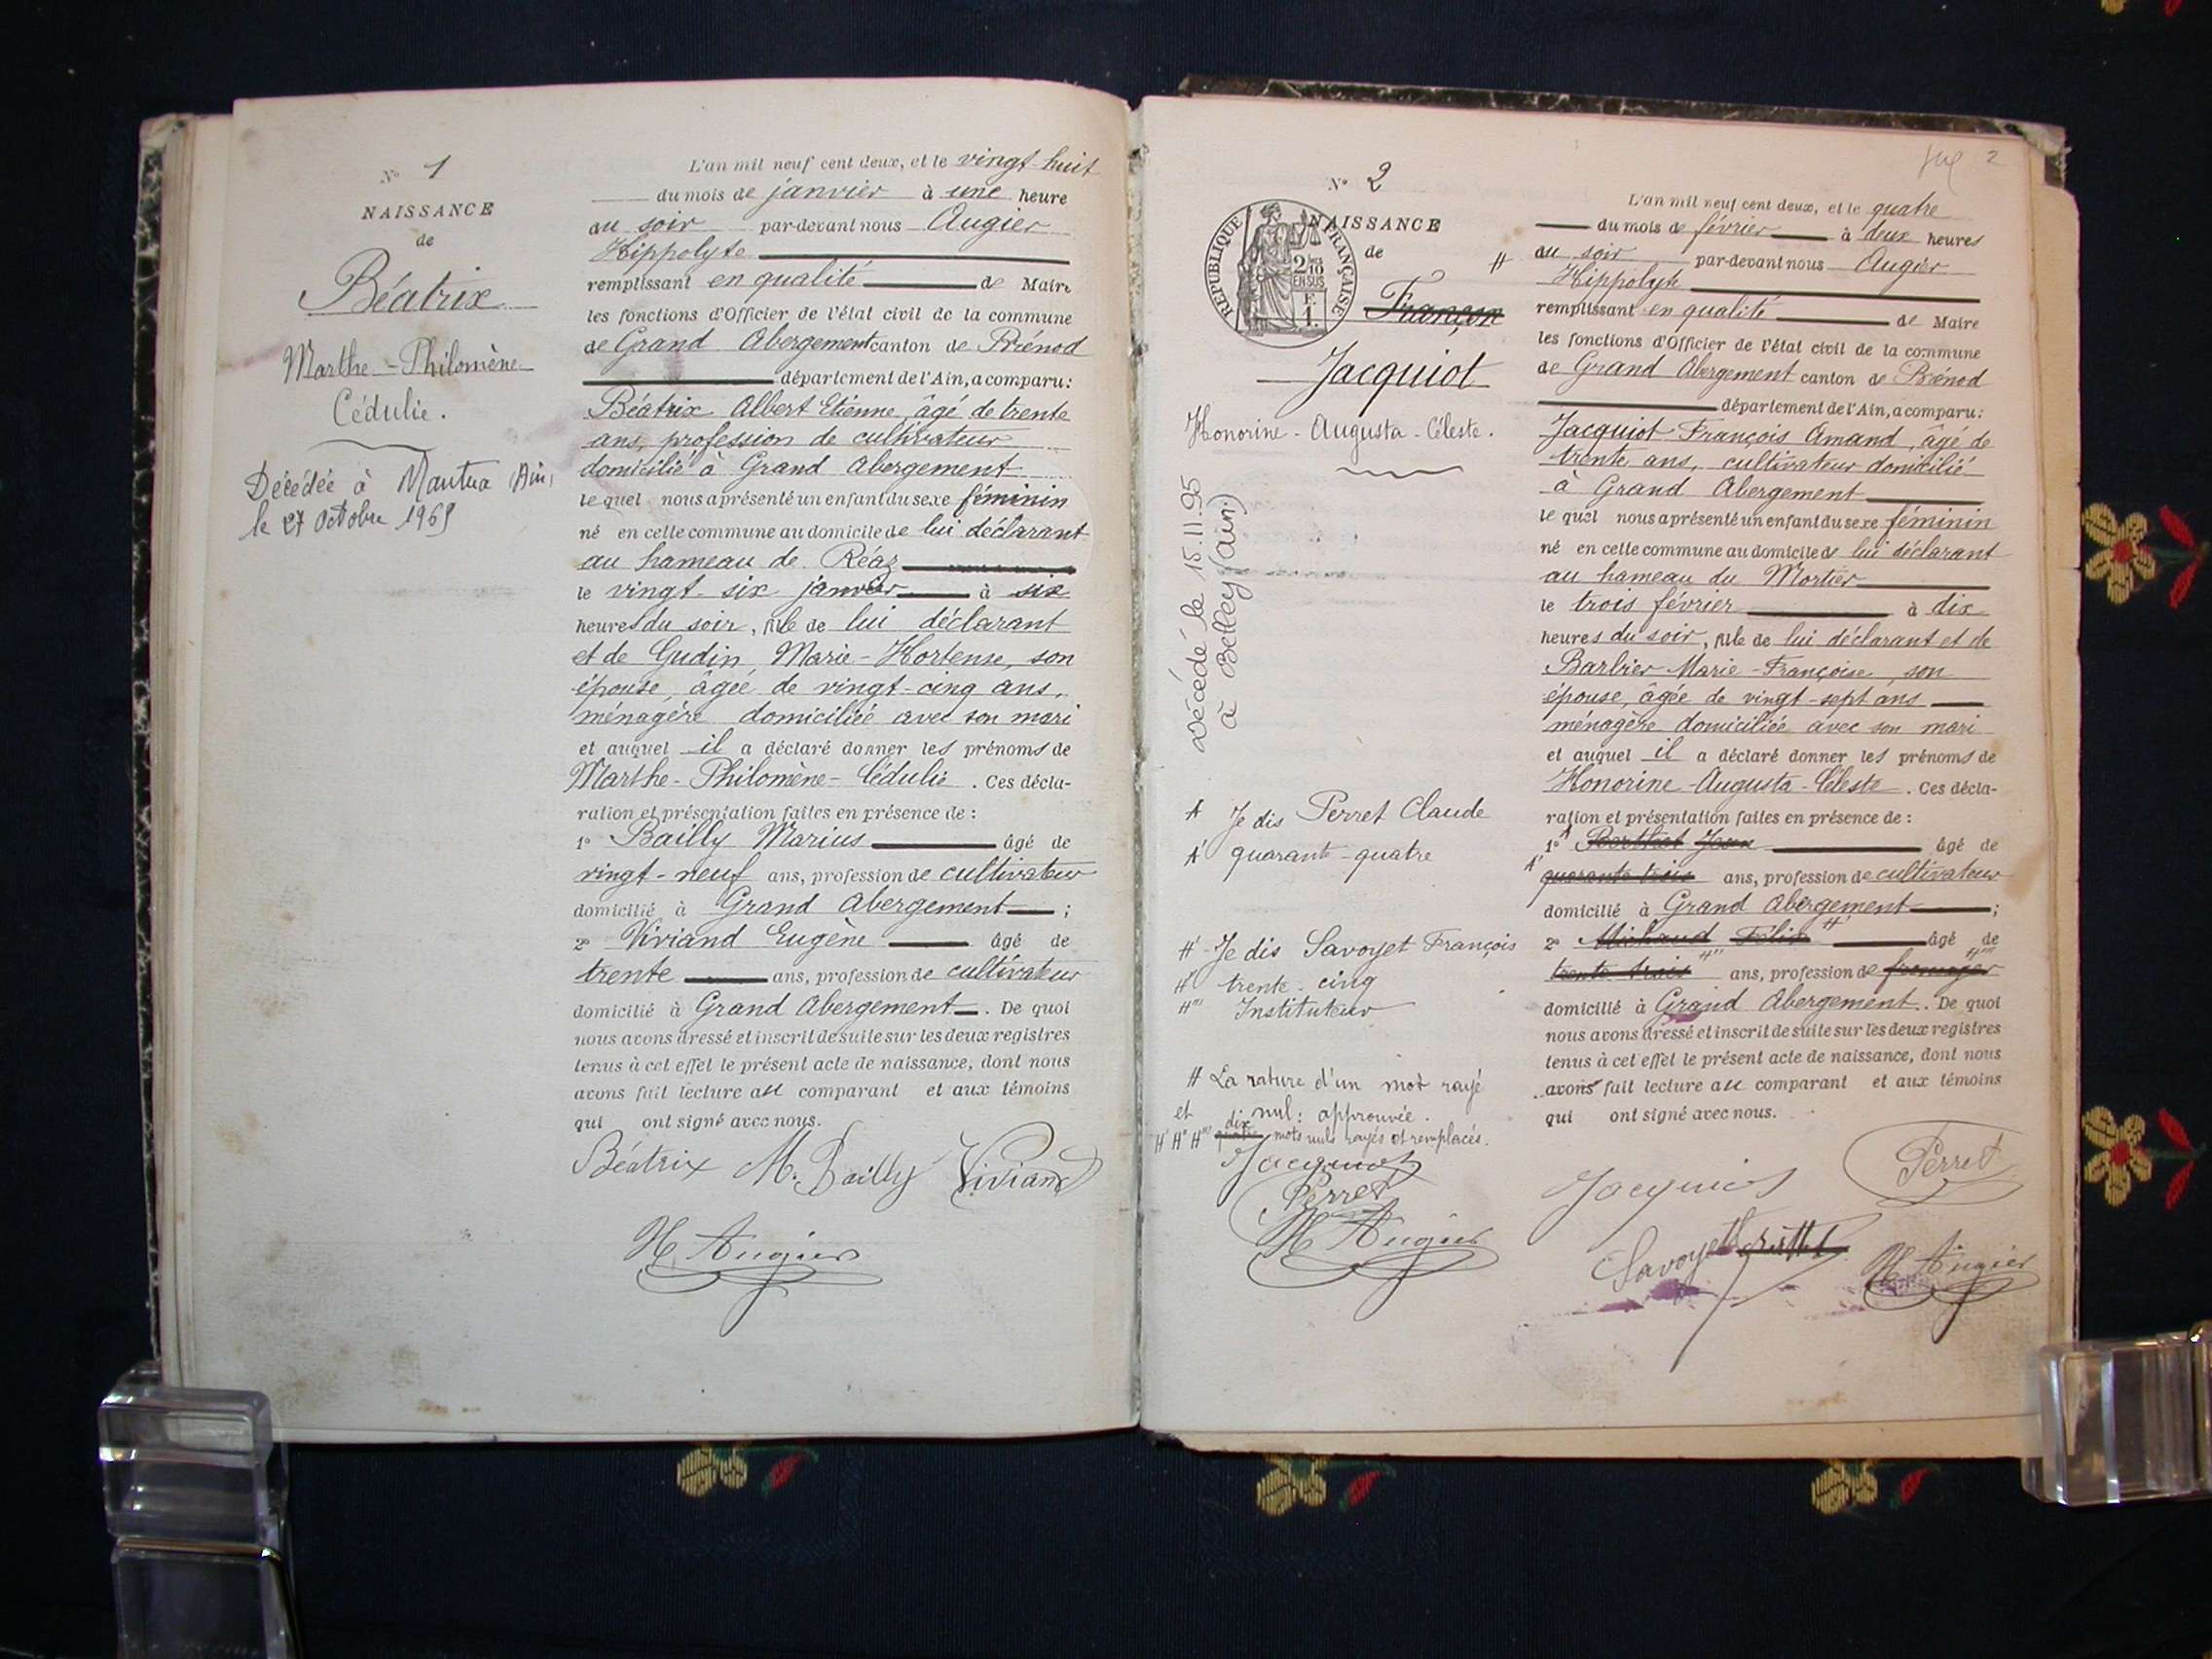 N° 1
NAISSANCE
de
Béatrix
Marthe-Philomène
Cédulie.
Décédée à Nantua (Ain)
le 27 Octobre 1969
L'an mil neuf cent deux, et le vingt-huit
du mois de janvier à une heure
du soir par-devant nous Augier
Hippolyte
remplissant en qualité de Maire
les fonctions d'Officier de l'état civil de la commune
de Grand Abergement canton de Brénod
département de l'Ain, a comparu:
Béatrix Albert Etienne, âgé de trente
ans, profession de cultivateur
domicilié à Grand Abergement
le quel nous a présenté un enfant du sexe féminin
né en cette commune au domicile de lui déclarant
au hameau de Réaz
le vingt-six janvier à six
heures du soir, fille de lui déclarant
et de Gudin, Marie-Hortense, son
épouse, âgée de vingt-cinq ans,
ménagère domiciliée avec son mari
et auquel il a déclaré donner les prénoms de
Marthe-Philomène-Cédulie. Ces décla-
ration et présentation faites en présence de :
1° Bailly Marius âgé de
vingt-neuf ans, profession de cultivateur
domicilié à Grand Abergement ;
2° Viviand Eugène âgé de
trente ans, profession de cultivateur
domicilié à Grand Abergement. De quoi
nous avons dressé et inscrit de suite sur les deux registres
tenus à cet effet le présent acte de naissance, dont nous
avons fait lecture au comparant et aux témoins
qui ont signé avec nous.
Béatrix M. Bailly Viviand
H Augier
2
N° 2
NAISSANCE
de
RÉPUBLIQUE FRANÇAISE
2/10 EN SUS
F. 1.
Françon
Jacquiot
Honorine-Augusta-Céleste.
Décédé le 15.11.95
à Belley (ain)
A Je dis Perret Claude
A' quarante-quatre
H' Je dis Savoyet François
H" trente-cinq
H"' Instituteur
H La rature d'un mot rayé
et nul: approuvée.
dix
H' H" H"' quatre mots nuls rayés et remplacés.
Jacquiot
Perret
H Augier
L'an mil neuf cent deux, et le quatre
du mois de février à deux heures
H du soir par-devant nous Augier
Hippolyte
remplissant en qualité de Maire
les fonctions d'Officier de l'état civil de la commune
de Grand Abergement canton de Brénod
département de l'Ain, a comparu:
Jacquiot François Amand, âgé de
trente ans, cultivateur domicilié
à Grand Abergement
le quel nous a présenté un enfant du sexe féminin
né en cette commune au domicile de lui déclarant
au hameau du Mortier
le trois février à dix
heures du soir, fille de lui déclarant et de
Barbier Marie-Françoise, son
épouse, âgée de vingt-sept ans
ménagère domiciliée avec son mari
et auquel il a déclaré donner les prénoms de
Honorine-Augusta-Céleste. Ces décla-
ration et présentation faites en présence de :
1° A Berthet Jean âgé de
A' quarante trois ans, profession de cultivateur
domicilié à Grand Abergement ;
2° Michaud Félix H' âgé de
trente trois H" ans, profession de fromager H"'
domicilié à Grand Abergement. De quoi
nous avons dressé et inscrit de suite sur les deux registres
tenus à cet effet le présent acte de naissance, dont nous
avons fait lecture au comparant et aux témoins
qui ont signé avec nous.
Jacquiot Perret
Savoyet H Augier